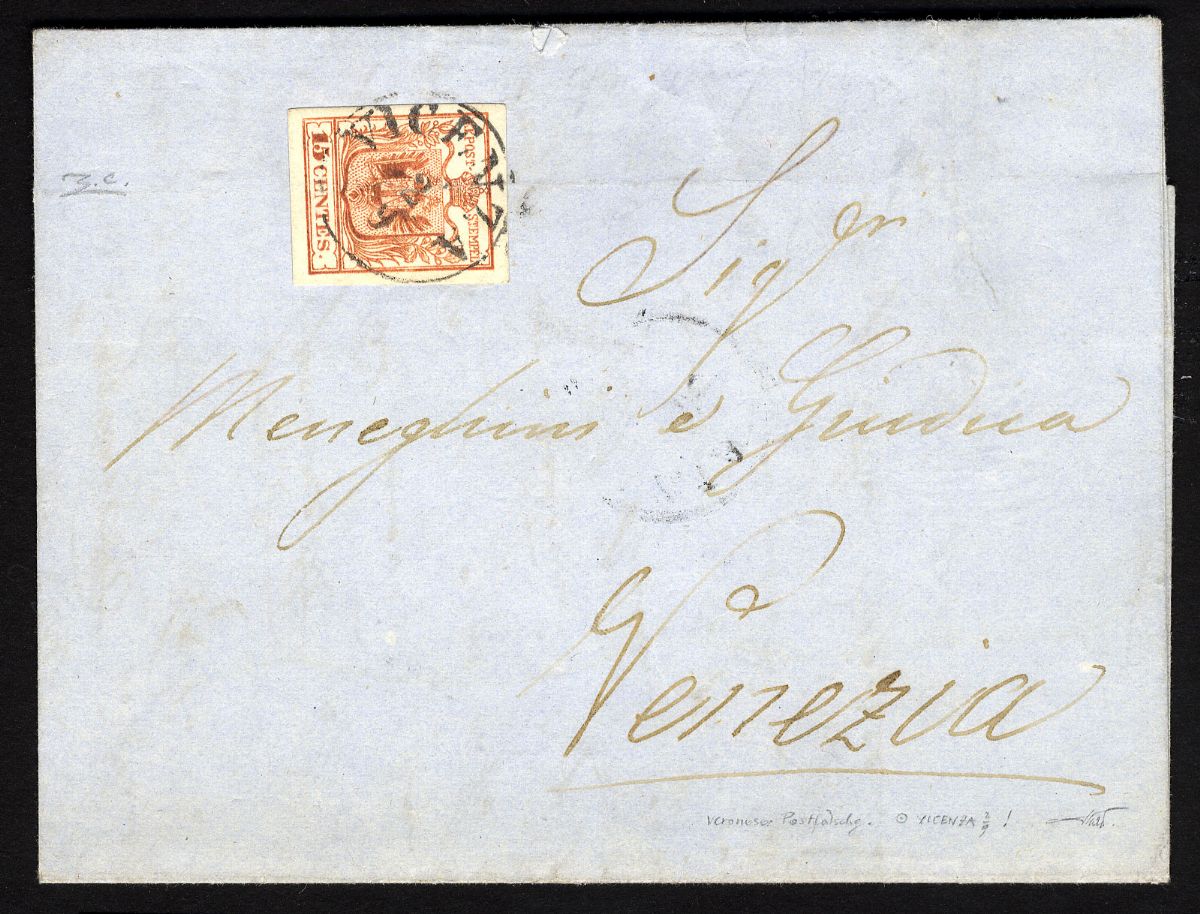 VICENZA
K.K.POST-STEMPEL
15 CENTES.
z.c.
Sigri
Meneghini e Giudica
Venezia
Veroneser Postfälschg. VICENZA 2/9 !